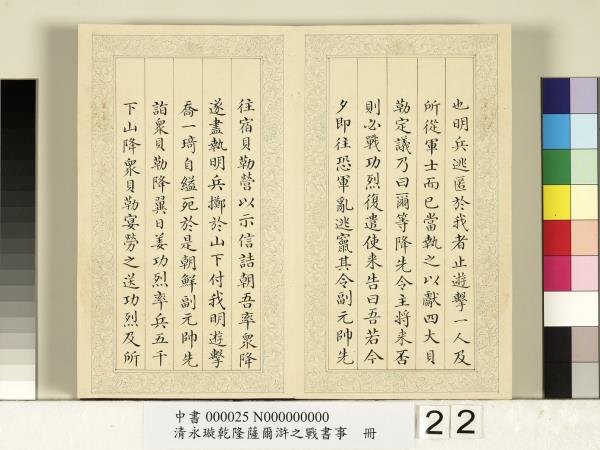 也明兵逃匿於我者止遊擊一人及
所從軍士而已當執之以獻四大貝
勒定議乃曰爾等降先令主將来否
則必戰功烈復遣使来告曰吾若今
夕即往恐軍亂逃竄其令副元帥先
往宿貝勒營以示信詰朝吾率衆降
遂盡執明兵擲於山下付我明遊擊
喬一琦自縊死於是朝鮮副元帥先
詣衆貝勒降翼日姜功烈率兵五千
下山降衆貝勒宴勞之送功烈及所
中書 000025 N000000000
清永璇乾隆薩爾滸之戰書事 冊
22